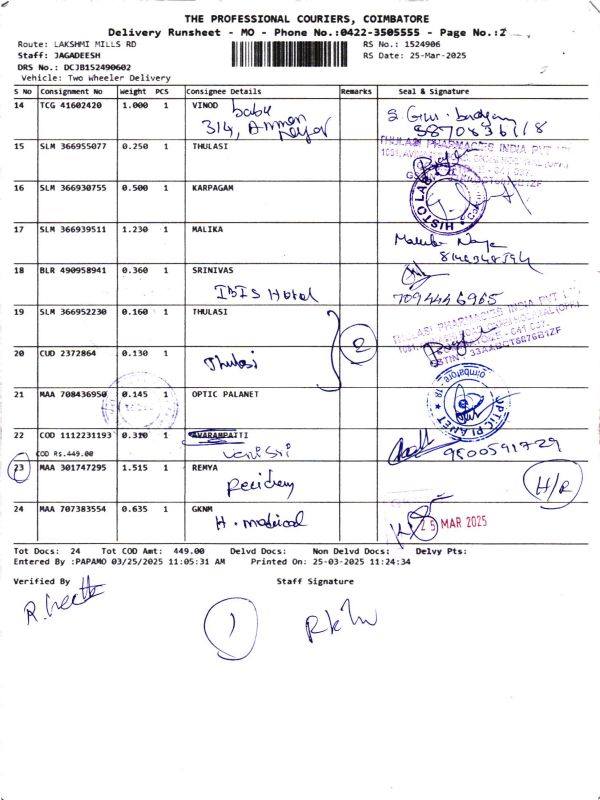 THE PROFESSIONAL COURIERS, COIMBATORE
Delivery Runsheet - MO - Phone No.:0422-3505555 - Page No.:2
Route: LAKSHMI MILLS RD
RS No.: 1524906
Staff: JAGADEESH
RS Date: 25-Mar-2025
DRS No.: DCJB152490602
Vehicle: Two Wheeler Delivery
S No Consignment No Weight PCS Consignee Details Remarks Seal & Signature
14 TCG 41602420 1.000 1 VINOD babu
314, Amman Nagar
15 SLM 366955077 0.250 1 THULASI
THULASI PHARMACIES INDIA PVT LTD
16 SLM 366930755 0.500 1 KARPAGAM
HISTO LAB
17 SLM 366939511 1.230 1 MALIKA
18 BLR 490958941 0.360 1 SRINIVAS
IBIS Hotal
7094446965
19 SLM 366952230 0.160 1 THULASI
THULASI PHARMACIES INDIA PVT LTD
2
20 CUD 2372864 0.130 1
Thulasi
GSTIN : 33AABCT5876B1ZF
21 MAA 708436950 0.145 1 OPTIC PALANET
OPTIC PLANET
Coimbatore - 18
22 COD 1112231193 0.310 1 AVARAMPAITI
COD Rs.449.00
9500591729
23 MAA 301747295 1.515 1 REMYA
H/R
24 MAA 707383554 0.635 1 GKNM
H. madical
25 MAR 2025
Tot Docs: 24 Tot COD Amt: 449.00 Delvd Docs: Non Delvd Docs: Delvy Pts:
Entered By :PAPAMO 03/25/2025 11:05:31 AM Printed On: 25-03-2025 11:24:34
Verified By Staff Signature
1